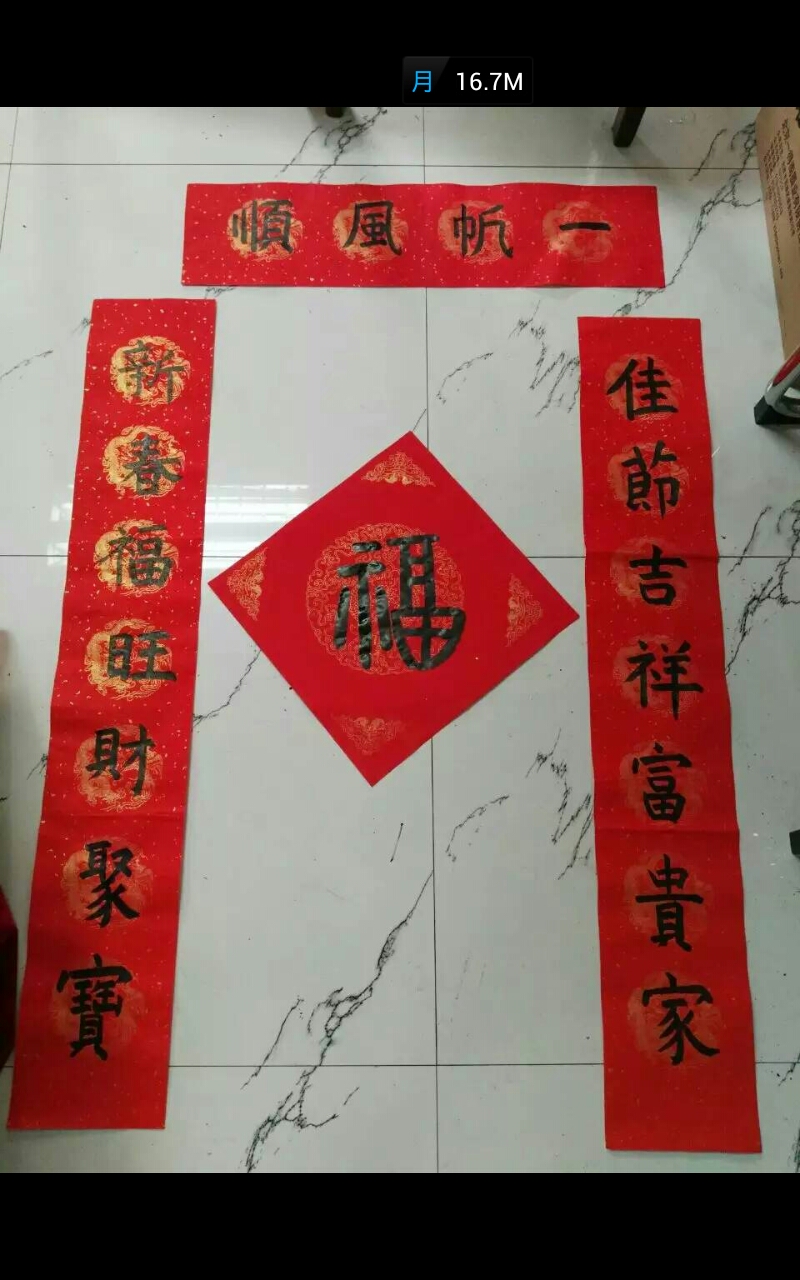 月 16.7M
一帆風順
佳節吉祥富貴家
新春福旺財聚寶
福